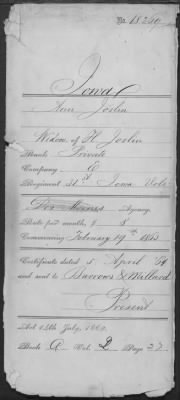 No. 18249
Iowa
Joslin
Widow of H Joslin
Rank, Private
Company E
Regiment 31st Iowa Vols
Des Moines Agency.
Rate per month, $ 8
Commencing February 19th 1863
Certificate dated 5 April 64
and sent to Burrows & Millard
Present
Act 14th July, 1862.
Book A Vol. 2 Page 27